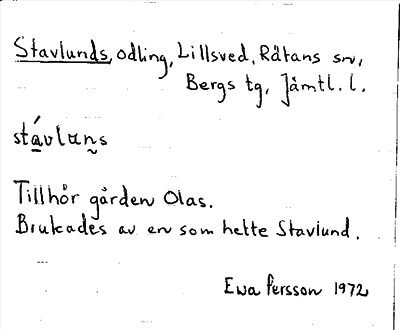 Stavlunds, odling, Lillsved, Råtans sn,
Bergs tg, Jämtl. l.
stávlan̰s
Tillhör gården Olas.
Brukades av en som hette Stavlund.
Ewa Persson 1972